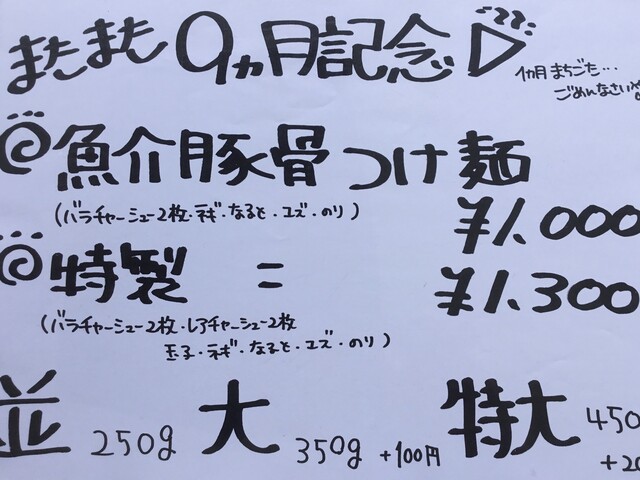 またまた 9ヵ月記念
1カ月 まちごた…
ごめんなさい
魚介豚骨つけ麺
(バラチャーシュー2枚・ネギ・なると・ユズ・のり)
¥1.000
特製 = ¥1.300
(バラチャーシュー2枚・レアチャーシュー2枚
玉子・ネギ・なると・ユズ・のり)
並 250g 大 350g +100円 特大 450
+20